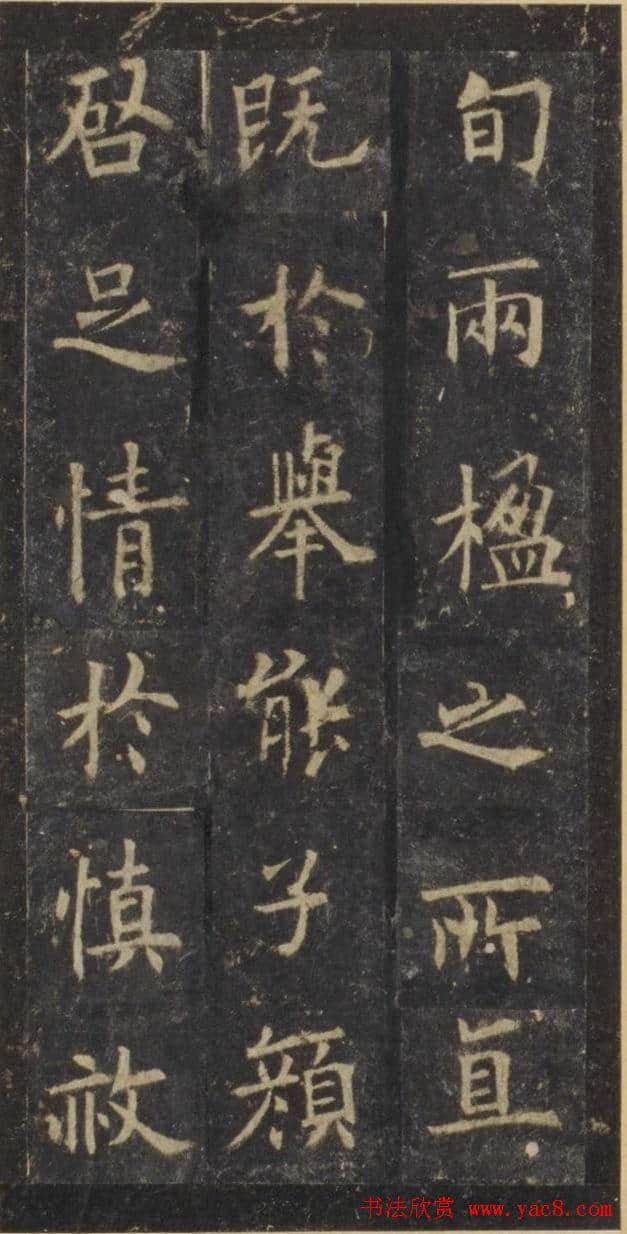 旬兩楹之所直
既於舉能子顔
啓足情於慎赦
书法欣赏 www.yac8.com